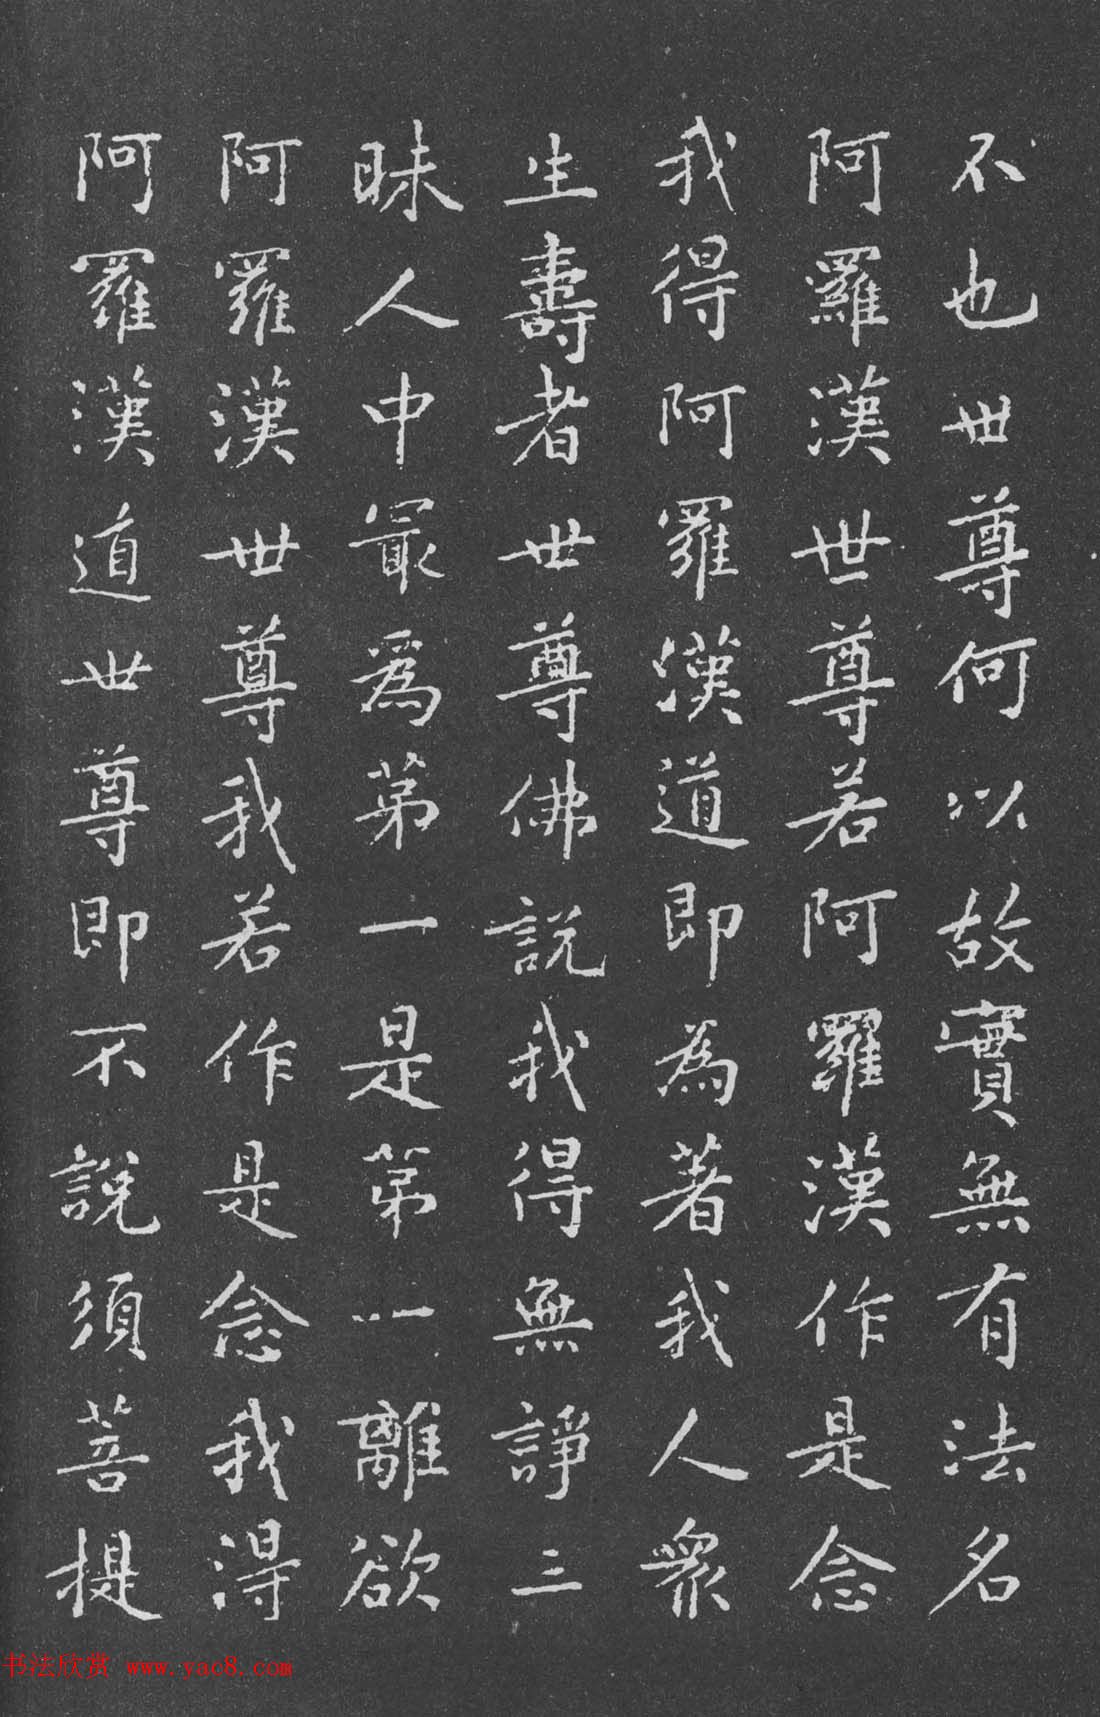 不也世尊何以故實無有法名
阿羅漢世尊若阿羅漢作是念
我得阿羅漢道即為著我人眾
生壽者世尊佛說我得無諍三
昧人中最為第一是第一離欲
阿羅漢世尊我若作是念我得
阿羅漢道世尊即不說須菩提
书法欣赏 www.yac8.com